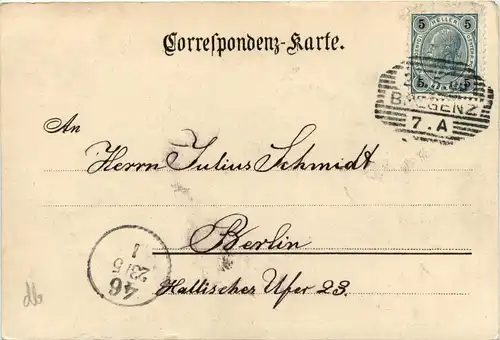 Correspondenz-Karte.
5 HELLER 5
5 5
BREGENZ
7. A
An
Herrn Julius Schmidt
Berlin
Hallisches Ufer 23.
46
23/5
1
db